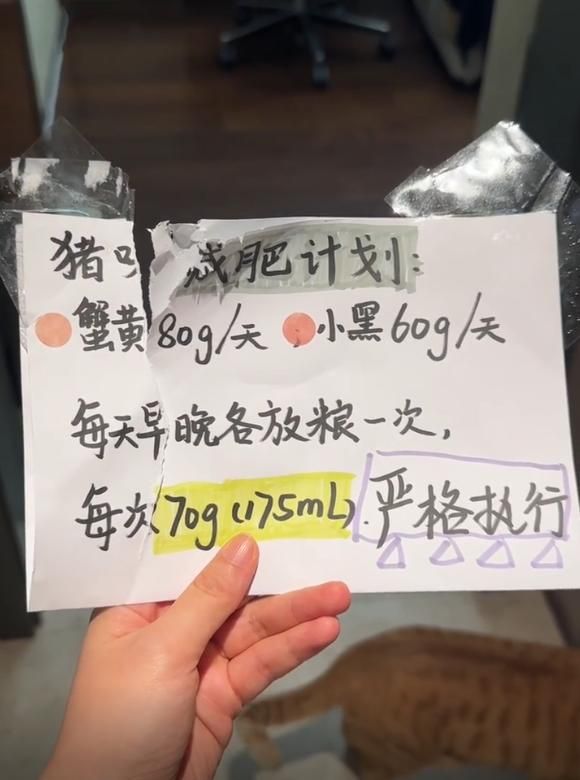 猪 减肥计划:
蟹黄80g/天 小黑60g/天
每天早晚各放粮一次,
每次70g(175mL).严格执行